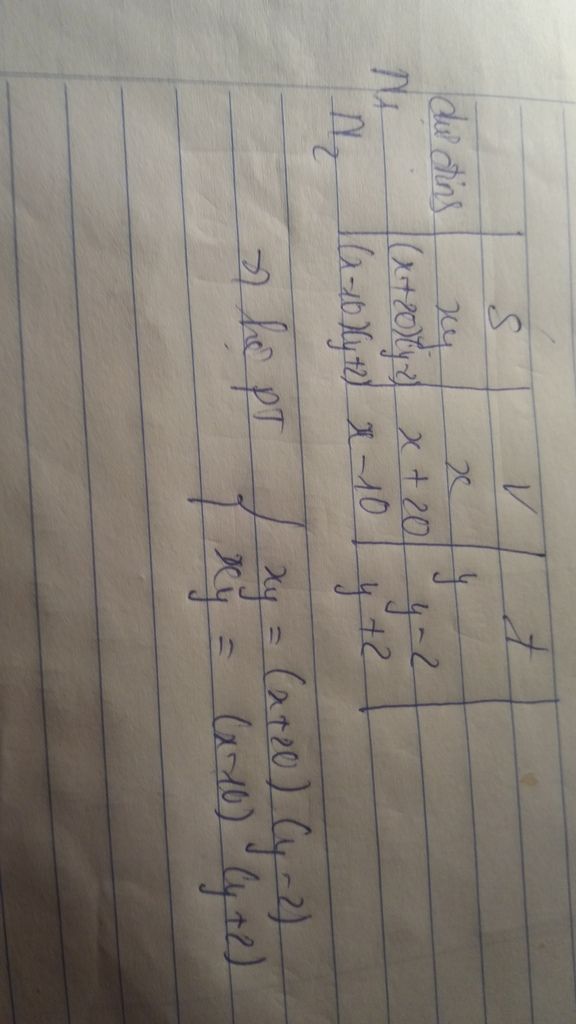 S V t
dự định xy x y
N1 (x+20)(y-2) x+20 y-2
N2 (x-10)(y+2) x-10 y+2
→ hệ pT { xy = (x+20) (y-2)
xy = (x-10) (y+2)